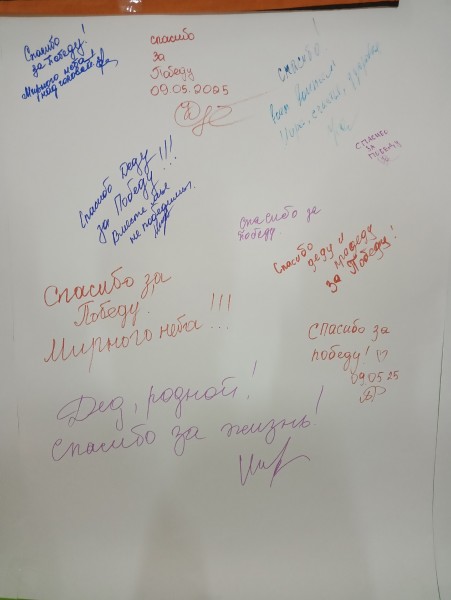 Спасибо
за Победу!
Мирного неба
над головой!
спасибо
за
Победу
09.05.2025
спасибо!
всем
Мира, счастья, здоровья
СПАСИБО
ЗА
ПОБЕДУ
Спасибо Деду
за Победу!!!
Вместе бы
не победили.
Спасибо за
победу.
Спасибо
деду и прадеду
за Победу!
Спасибо за
Победу.
Мирного неба!!!
СПАСИБО за
победу! ♡
09.05.25
Дед, родной!
Спасибо за жизнь!